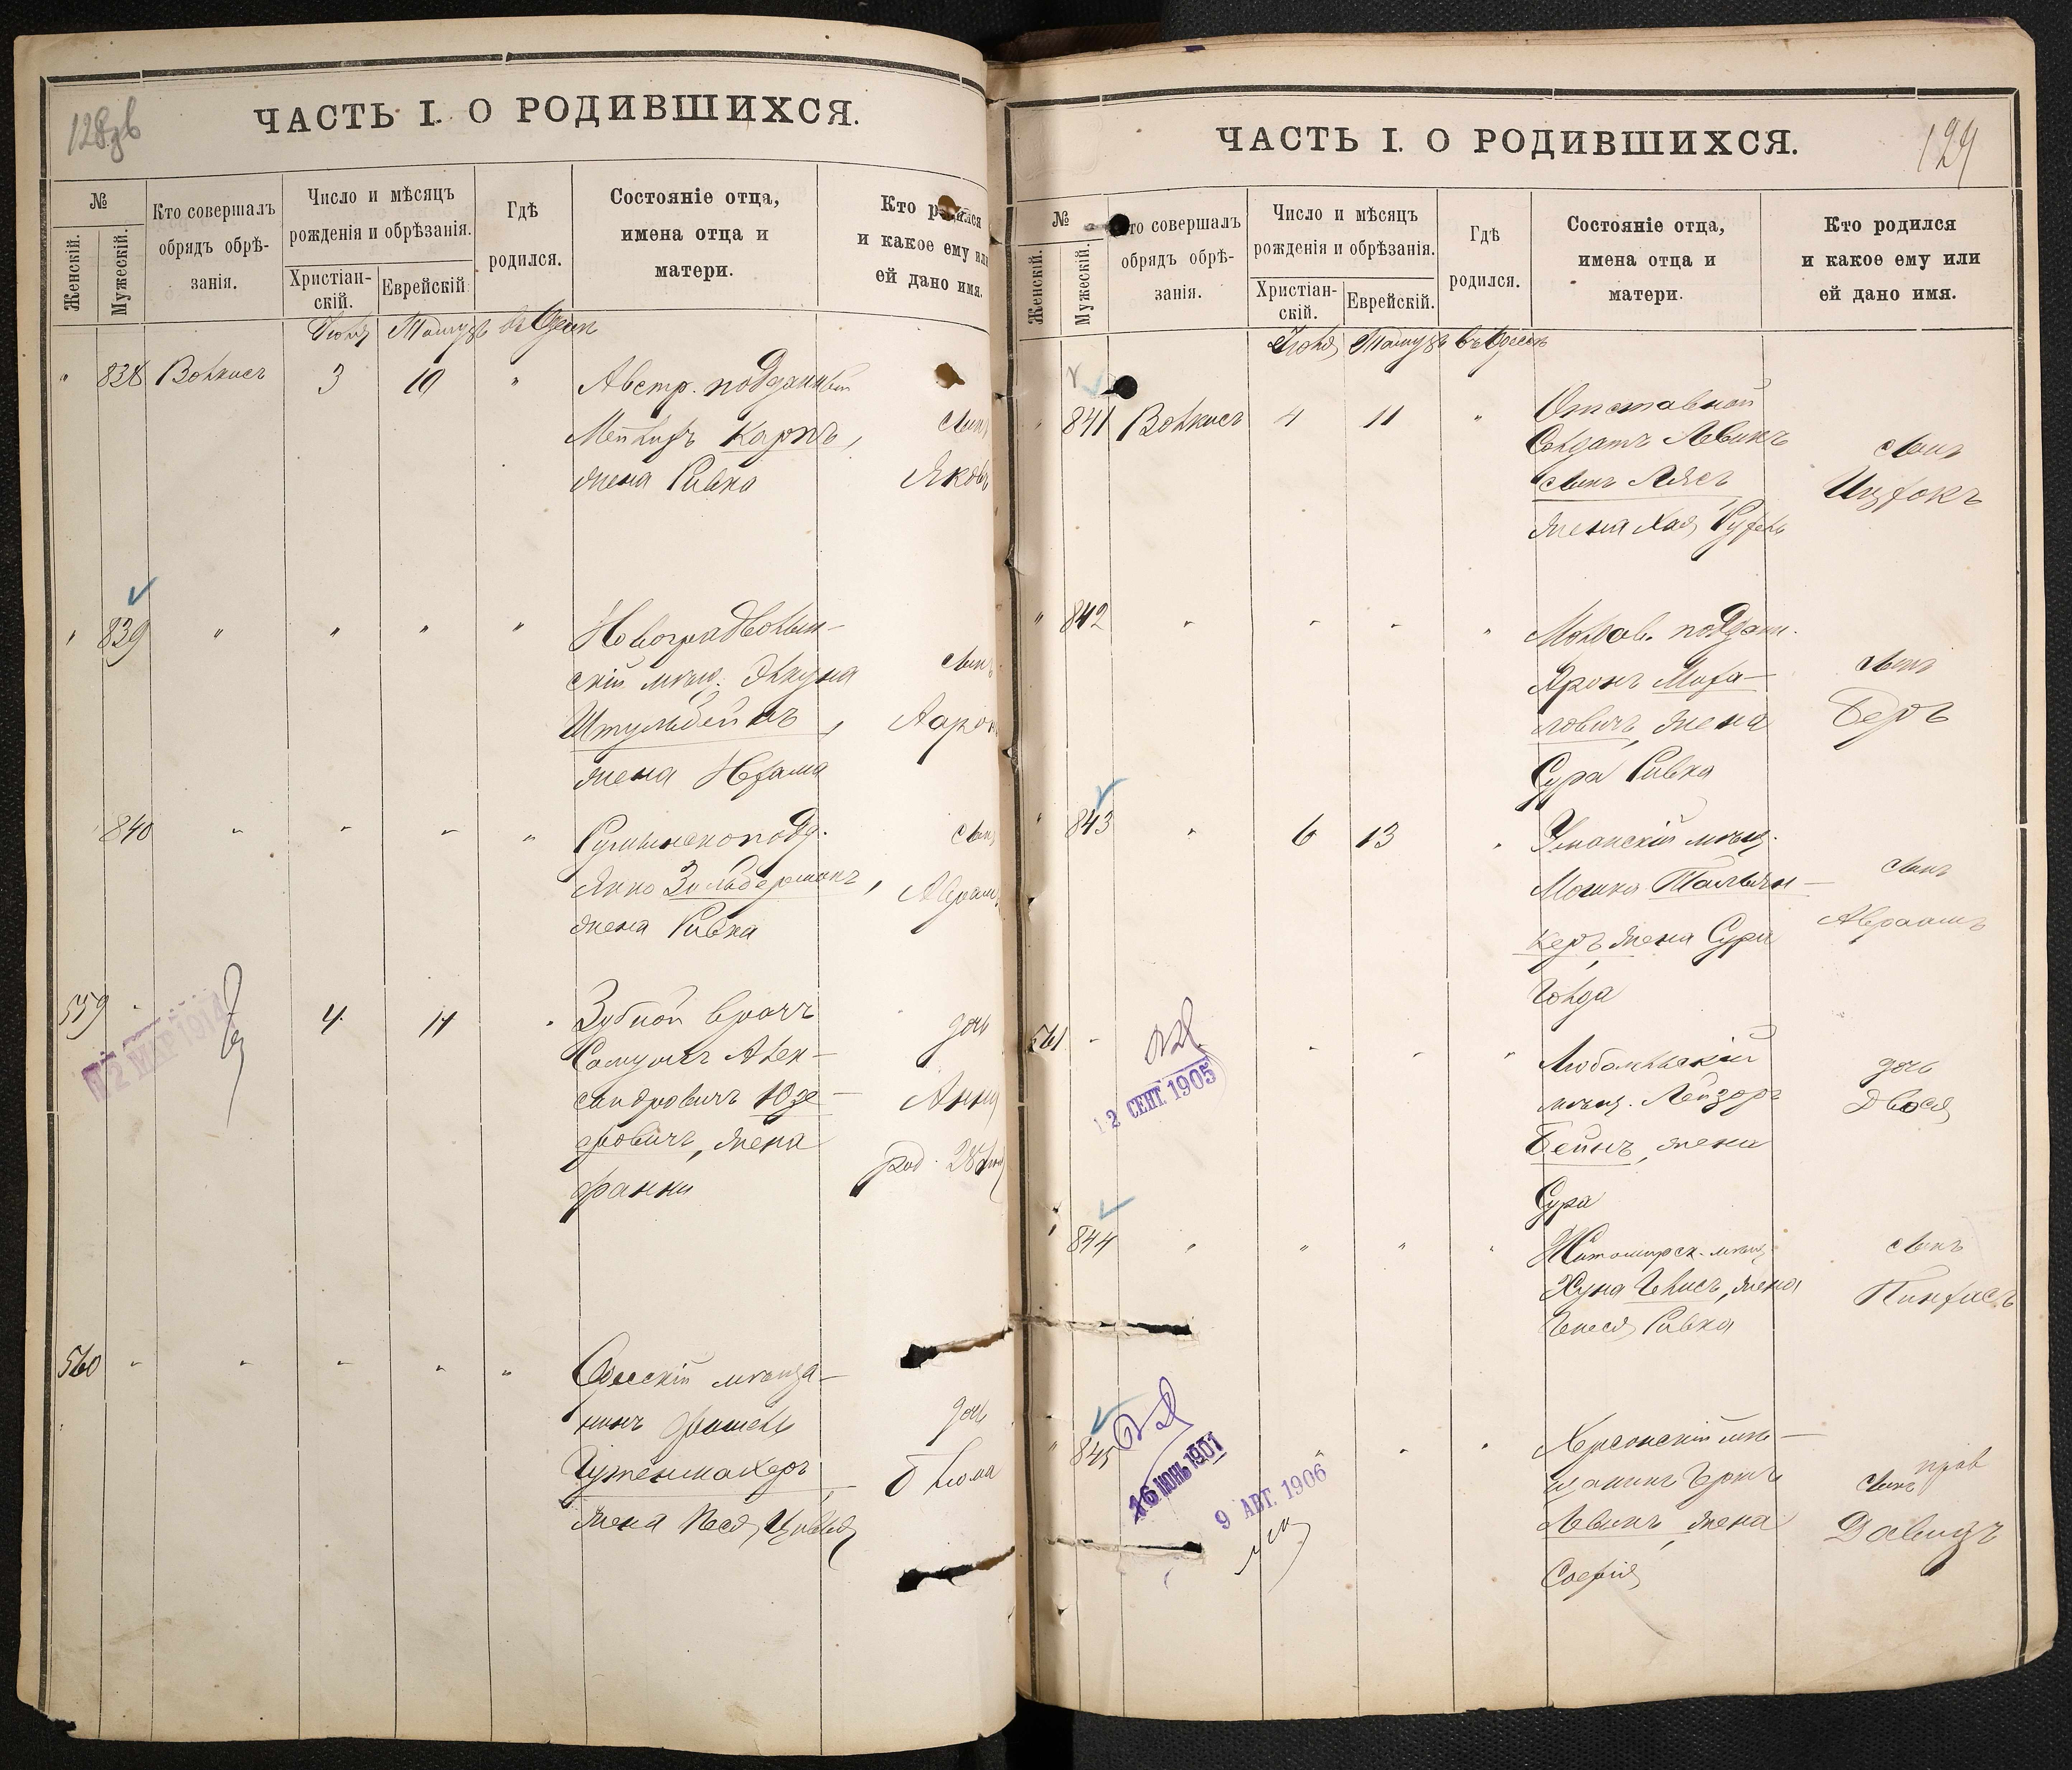 128 об
ЧАСТЬ I. О РОДИВШИХСЯ.
№
Женскій.
Мужескій.
Кто совершалъ
обрядъ обрѣ-
занія.
Число и мѣсяцъ
рожденія и обрѣзанія.
Христіан-
скій.
Еврейскій
Гдѣ
родился.
Состояніе отца,
имена отца и
матери.
Кто родился
и какое ему или
ей дано имя.
Іюля Тамузъ въ Одессѣ
" 838 Волкисъ 3 10 " Австр. подданный
Карпъ,
жена Ривка
сынъ
Яковъ
" 839 " " " " Новоградволын-
скій мѣщ.
Штульбейнъ,
жена Нехама
сынъ
Ааронъ
840 " " " " Румынскоподд.
Янко Зильберманъ,
жена Ривка
сынъ
Абрамъ
559 " 4 11 " Зубной врачъ
Самуилъ Алек-
сандровичъ Юзе-
фовичъ, жена
Фанни
дочь
Анна
род. 28
2 МАР 1914
560 " " " " " Одесскій мѣща-
нинъ Фишель
Гуженмахеръ,
жена Песя Цивья
дочь
Блюма
129
ЧАСТЬ I. О РОДИВШИХСЯ.
№
Женскій.
Мужескій.
Кто совершалъ
обрядъ обрѣ-
занія.
Число и мѣсяцъ
рожденія и обрѣзанія.
Христіан-
скій.
Еврейскій.
Гдѣ
родился.
Состояніе отца,
имена отца и
матери.
Кто родился
и какое ему или
ей дано имя.
Іюля Тамузъ въ Одессѣ
" 841 Волкисъ 4 11 " Отставной
Солдатъ Левинъ
жена Хая Рухель
сынъ
Ицхокъ
" 842 " " " " Молдав. поддан.
Аронъ Миха-
ловичъ, жена
Сура Ривка
сынъ
Беръ
" 843 " 6 13 " Уманскій мѣщ.
Мошко Тальян-
керъ, жена Сура
Голда
сынъ
Авраамъ
561 " " " " Любомльскій
мѣщ. Лейзоръ
Бейнъ, жена
Сура
дочь
Двося
12 СЕНТ 1905
" 844 " " " " Житомирск. мѣщ.
Хуна Гелисъ, жена
Генеся Ривка
сынъ
Пинхасъ
" 845 " " " Херсонскій мѣ-
щанинъ Гершъ
Левинъ, жена
Софія
сынъ
Давидъ
16 ІЮНЬ 1901
9 АВГ. 1906